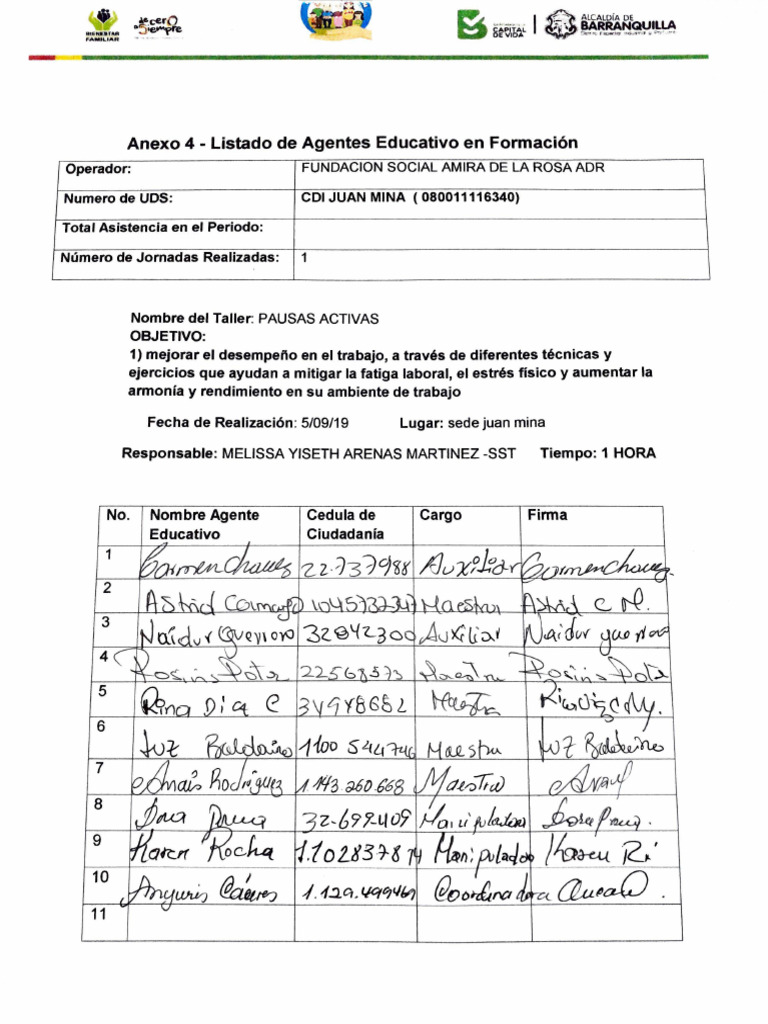 BIENESTAR
FAMILIAR
de cer0
a Siempre
CAPITAL
DE VIDA
ALCALDÍA DE
BARRANQUILLA
Anexo 4 - Listado de Agentes Educativo en Formación
Operador: FUNDACION SOCIAL AMIRA DE LA ROSA ADR
Numero de UDS: CDI JUAN MINA ( 080011116340)
Total Asistencia en el Periodo:
Número de Jornadas Realizadas: 1
Nombre del Taller: PAUSAS ACTIVAS
OBJETIVO:
1) mejorar el desempeño en el trabajo, a través de diferentes técnicas y
ejercicios que ayudan a mitigar la fatiga laboral, el estrés físico y aumentar la
armonía y rendimiento en su ambiente de trabajo
Fecha de Realización: 5/09/19 Lugar: sede juan mina
Responsable: MELISSA YISETH ARENAS MARTINEZ -SST Tiempo: 1 HORA
No. Nombre Agente Educativo Cedula de Ciudadanía Cargo Firma
1 Carmen Chavez 22.737988 Auxiliar Carmen Chavez.
2 Astrid Camargo 1045737347 Maestra Astrid C M.
3 Naidur Guerrero 32842300 Auxiliar Naidur guerrero
4 22568573 Maestra
5 Rina Dia C 34978682 Maestra
6 Luz 1100544746 Maestra Luz
7 Anais Rodríguez 1.143.260.668 Maestra
8 Dora 32-699-409 Manipuladora Dora
9 Karen Rocha 1.102837874 Manipulador Karen R
10 Anguris Cáceres 1.129.499469 Coordinadora
11